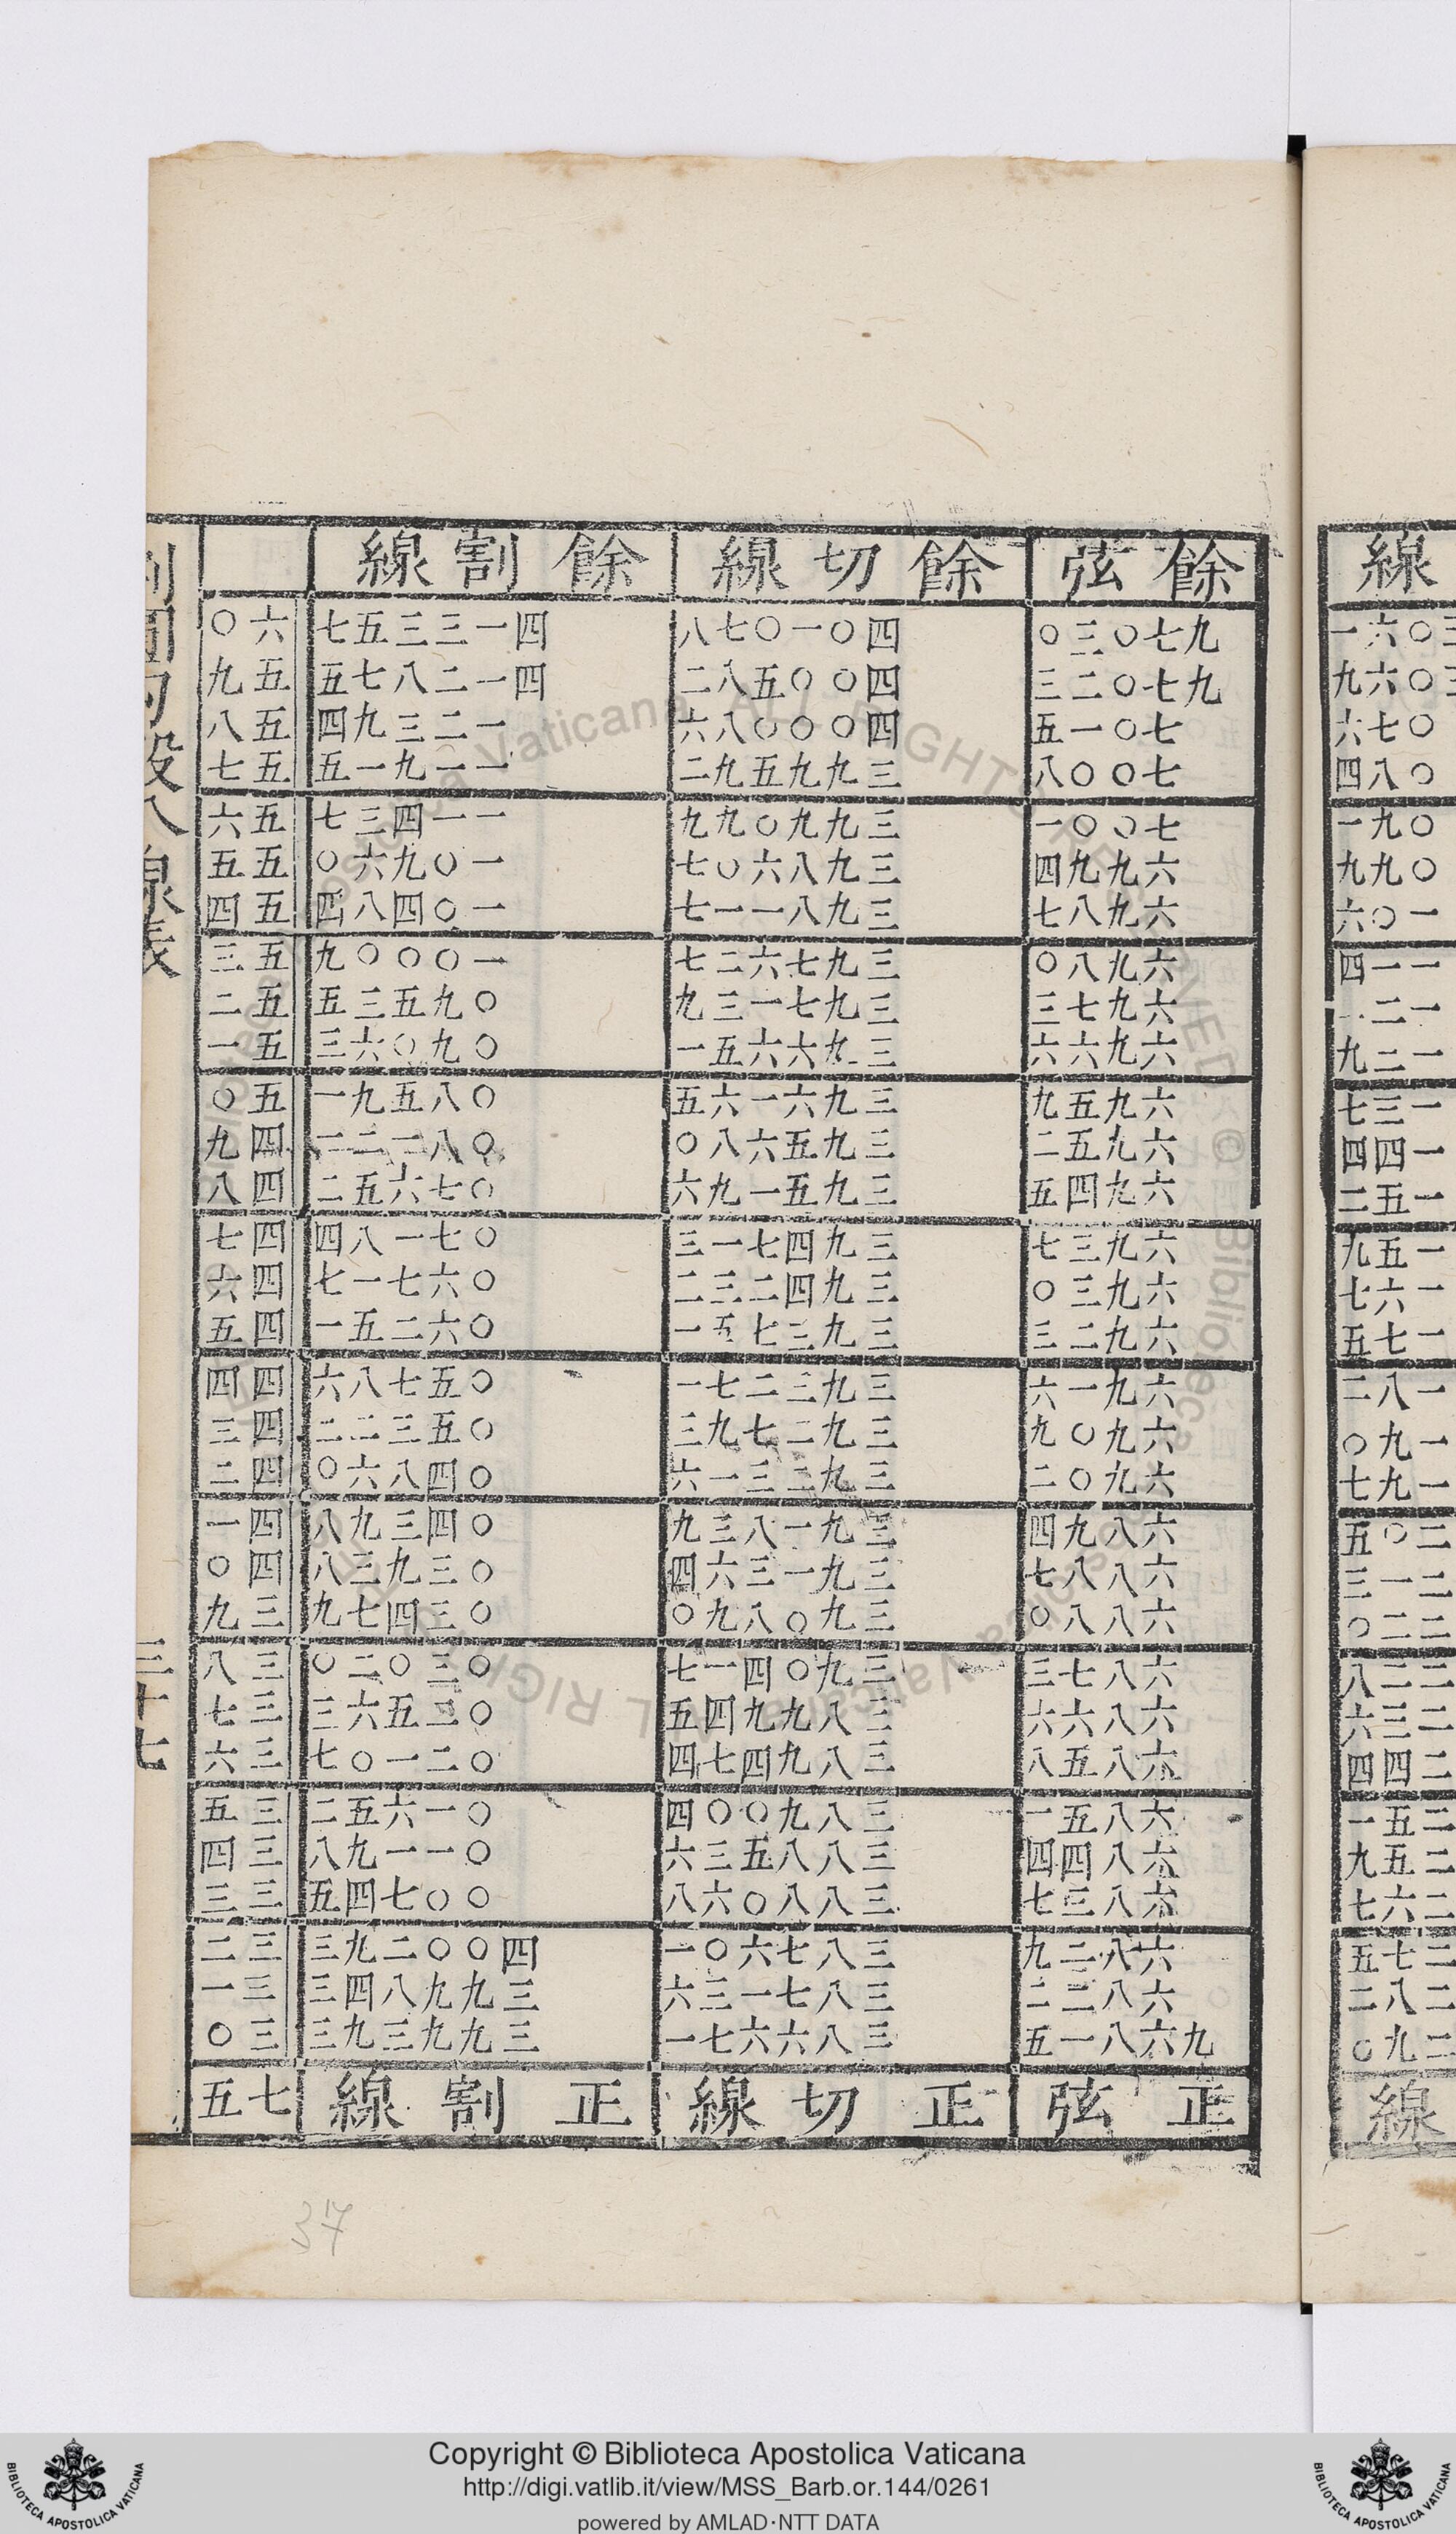 線
三〇六一
三〇六九
〇七六
〇八四
〇九一
〇九九
一〇六
一一四
一二
一二九
一三七
一四四
一五二
一五九
一六七
一七五
一八二
一九〇
一九七
二〇五
二一三
二二〇
二二八
二三六
二四四
二五一
二五九
二六七
二七五
二八二
二九〇
線
餘弦 餘切線 餘割線
九七〇三〇 四〇一〇七八 四一三三五七 六〇
九七〇二三 四〇〇五八二 四一二八七五 五九
七〇一五 四〇〇〇八六 一二三九四 五八
七〇〇八 三九九五九二 一一九一五 五七
七〇〇一 三九九〇九九 一一四三七 五六
六九九四 三九八六〇七 一〇九六〇 五五
六九八七 三九八一一七 一〇四八四 五四
六九八〇 三九七六二七 一〇〇〇九 五三
六九七三 三九七一三九 〇九五三五 五二
六九六六 三九六六五一 〇九〇六三 五一
六九五九 三九六一六五 〇八五九一 五〇
六九五二 三九五六八〇 〇八一二一 四九
六九四五 三九五一九六 〇七六五二 四八
六九三七 三九四七一三 〇七一八四 四七
六九三〇 三九四二三二 〇六七一七 四六
六九二三 三九三七五一 〇六二五一 四五
六九一六 三九三二七一 〇五七八六 四四
六九〇九 三九二七九三 〇五三二二 四三
六九〇二 三九二三一六 〇四八六〇 四二
六八九四 三九一八三九 〇四三九八 四一
六八八七 三九一三六四 〇三九三八 四〇
六八八〇 三九〇八九〇 〇三四七九 三九
六八七三 三九〇四一七 〇三〇二〇 三八
六八六六 三八九九四五 〇二五六三 三七
六八五八 三八九四七四 〇二一〇七 三六
六八五一 三八九〇〇四 〇一六五二 三五
六八四四 三八八五三六 〇一一九八 三四
六八三七 三八八〇六八 〇〇七四五 三三
六八二九 三八七六〇一 四〇〇二九三 三二
六八二二 三八七一三六 三九九八四三 三一
九六八一五 三八六六七一 三九九三九三 三〇
正弦 正切線 正割線 七五
割圓勾股八線表
三十七
37
Copyright © Biblioteca Apostolica Vaticana
http://digi.vatlib.it/view/MSS_Barb.or.144/0261
powered by AMLAD·NTT DATA